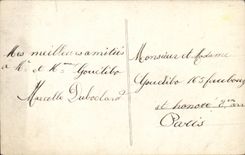 Mes meilleures amitiés
à Mr et Mme Goudibo
Marcelle
Monsieur et Madame
Goudibo 163 faubourg
st honoré
Paris